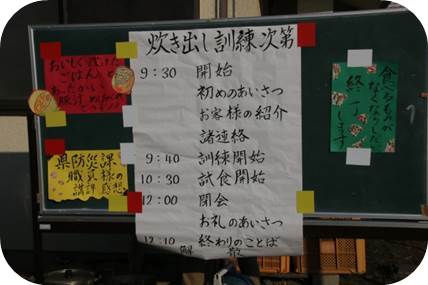 炊き出し訓練次第
9:30 開始
初めのあいさつ
お客様の紹介
諸連絡
9:40 訓練開始
10:30 試食開始
12:00 閉会
お礼のあいさつ
12:10 終わりのことば
解散
おいしく炊けた
ごはんと
あったかい
豚汁
県防災課
職員様の
講評感想
食べるものが
なくなりしだい
終了
します